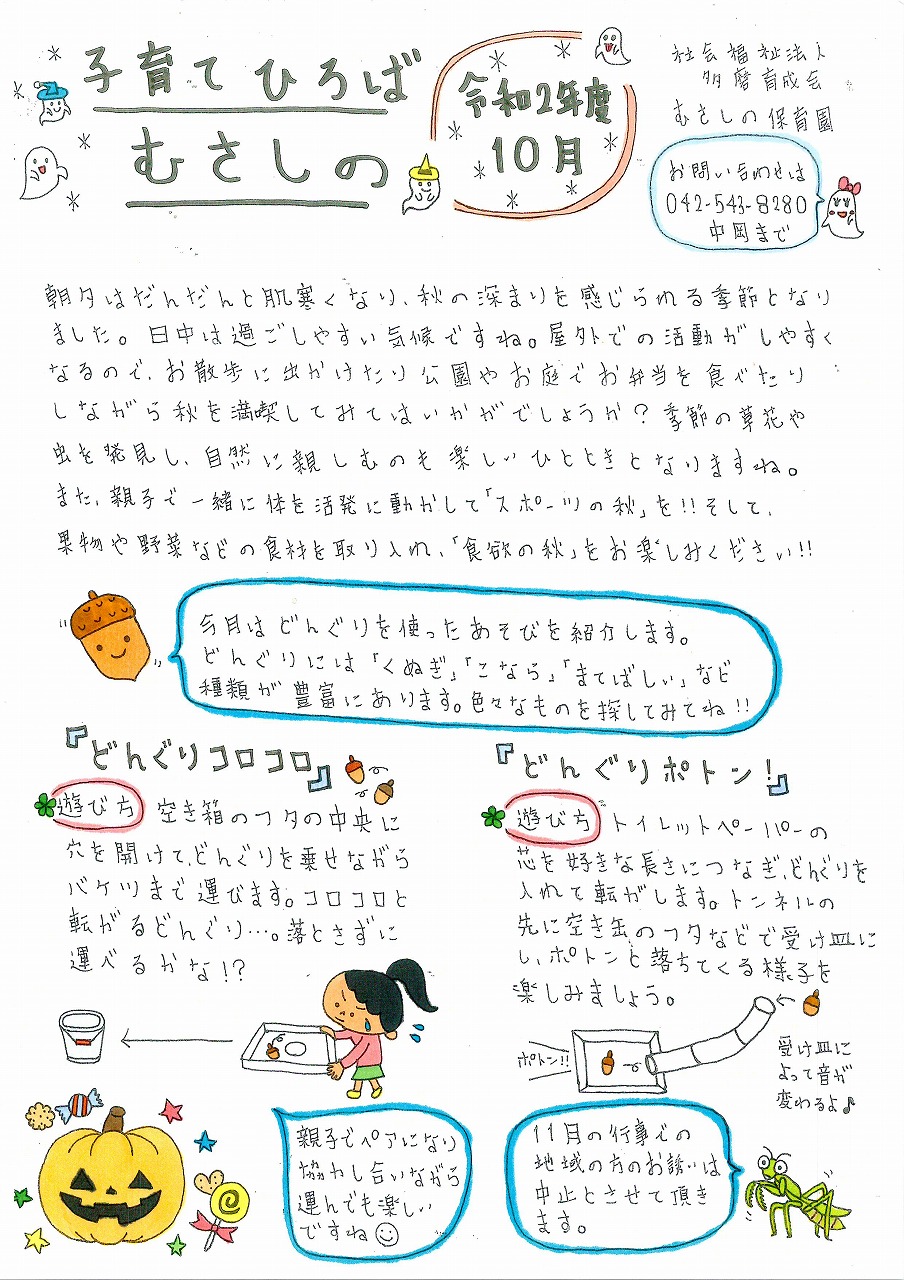 子育てひろば
むさしの
令和2年度
10月
社会福祉法人
多磨育成会
むさしの保育園
お問い合わせは
042-543-8280
中岡まで
朝夕はだんだんと肌寒くなり、秋の深まりを感じられる季節となり
ました。日中は過ごしやすい気候ですね。屋外での活動がしやすく
なるので、お散歩に出かけたり公園やお庭でお弁当を食べたり
しながら秋を満喫してみてはいかがでしょうか?季節の草花や
虫を発見し、自然に親しむのも楽しいひとときとなりますね。
また、親子で一緒に体を活発に動かして「スポーツの秋」を!!そして、
果物や野菜などの食材を取り入れ、「食欲の秋」をお楽しみください!!
今月はどんぐりを使ったあそびを紹介します。
どんぐりには「くぬぎ」「こなら」「まてばしい」など
種類が豊富にあります。色々なものを探してみてね!!
『どんぐりコロコロ』
遊び方 空き箱のフタの中央に
穴を開けて、どんぐりを乗せながら
バケツまで運びます。コロコロと
転がるどんぐり…。落とさずに
運べるかな!?
『どんぐりポトン!』
遊び方 トイレットペーパーの
芯を好きな長さにつなぎ、どんぐりを
入れて転がします。トンネルの
先に空き缶のフタなどで受け皿に
し、ポトンと落ちてくる様子を
楽しみましょう。
ポトン!!
受け皿に
よって音が
変わるよ♪
親子でペアになり
協力し合いながら
運んでも楽しい
ですね
11月の行事での
地域の方のお誘いは
中止とさせて頂き
ます。